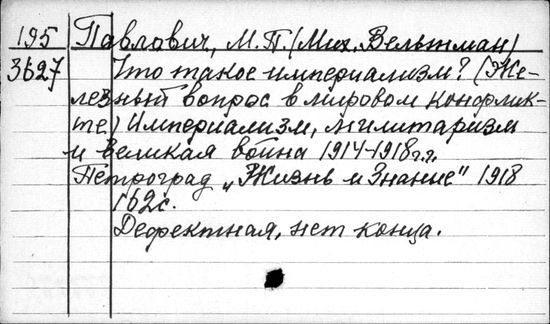 195 Павлович, М.П. (Мих. Вельтман)
3627 Что такое империализм? (Же-
лезный вопрос в мировом конфлик-
те) Империализм, милитаризм
и великая война 1914-1918 г.г.
Петроград „Жизнь и Знание" 1918
162с.
Дефектная, нет конца.